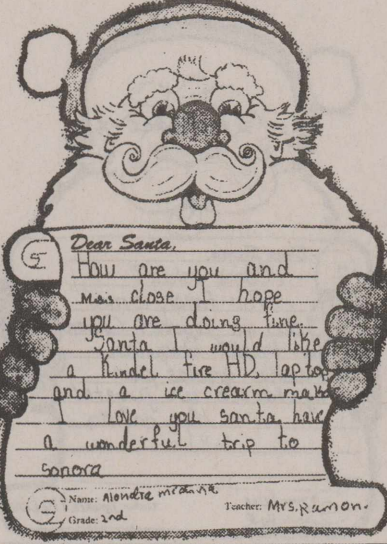 Dear Santa,
How are you and
Missis close I hope
you are doing fine.
Santa I would like
a Kindel fire HD, laptop
and a ice crearm make
I love you santa have
a wonderful trip to
sonora
Name: Alondra
Teacher: Mrs. Ramon.
Grade: 2nd